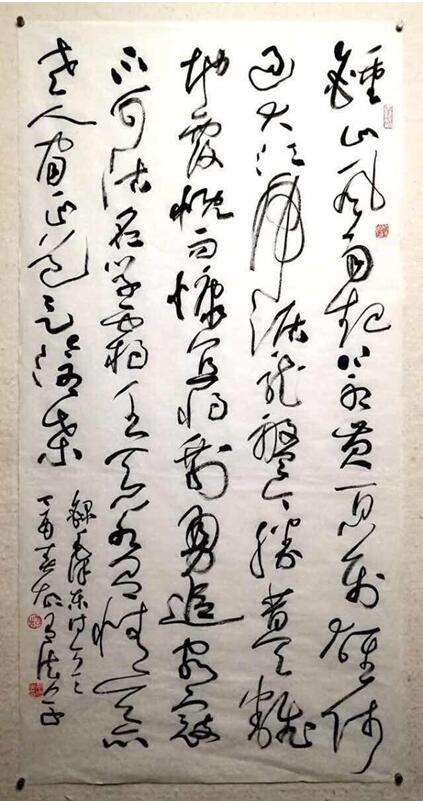 鍾山風雨起蒼黄百万雄师
过大江虎踞龙盘今胜昔天翻
地覆慨而慷宜将剩勇追穷寇
不可沽名学霸王天若有情天亦
老人间正道是沧桑
録毛泽东诗
丁酉春